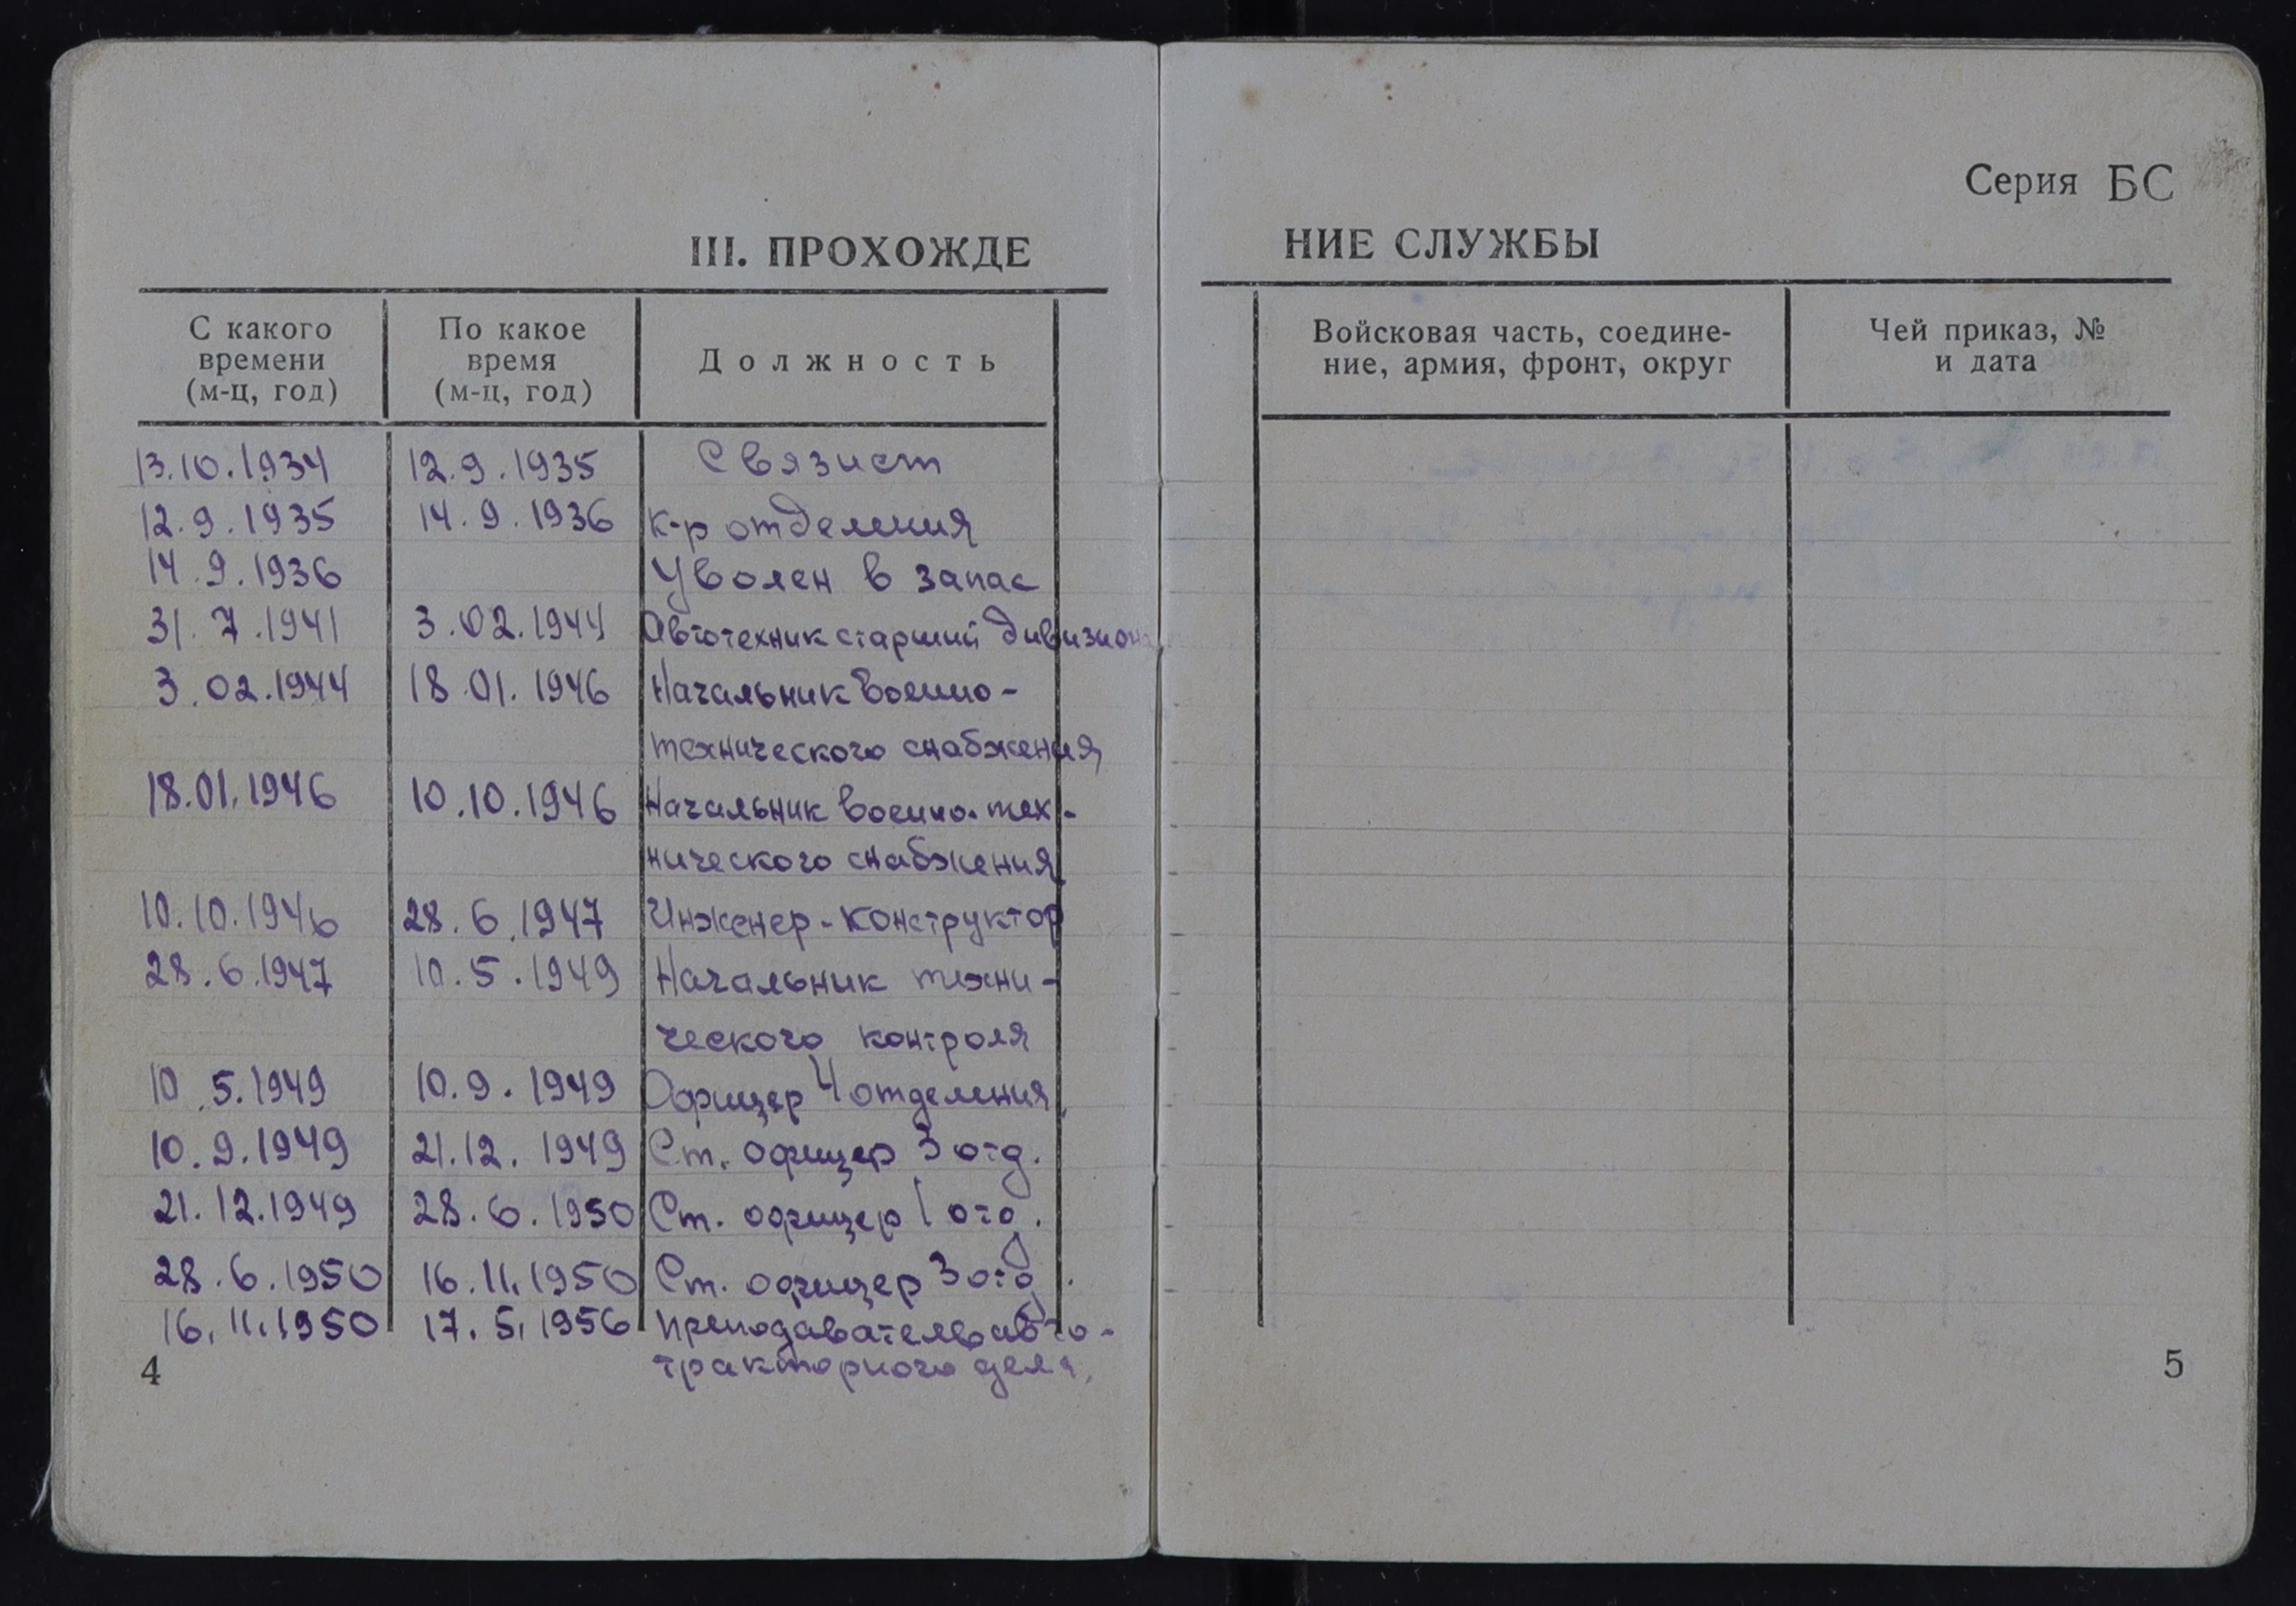 Серия БС
III. ПРОХОЖДЕ НИЕ СЛУЖБЫ
С какого времени (м-ц, год) По какое время (м-ц, год) Должность Войсковая часть, соедине- ние, армия, фронт, округ Чей приказ, № и дата
13.10.1934 12.9.1935 Связист
12.9.1935 14.9.1936 к-р отделения
14.9.1936 Уволен в запас
31.7.1941 3.02.1944 Автотехник старший дивизиона
3.02.1944 18.01.1946 Начальник военно-
технического снабжения
18.01.1946 10.10.1946 Начальник военно-тех-
нического снабжения
10.10.1946 28.6.1947 Инженер-конструктор
28.6.1947 10.5.1949 Начальник техни-
ческого контроля
10.5.1949 10.9.1949 Офицер 4 отделения
10.9.1949 21.12.1949 Ст. офицер 3 отд.
21.12.1949 28.6.1950 Ст. офицер 1 отд.
28.6.1950 16.11.1950 Ст. офицер 3 отд.
16.11.1950 17.5.1956 преподаватель авто-
тракторного дела,
4 5